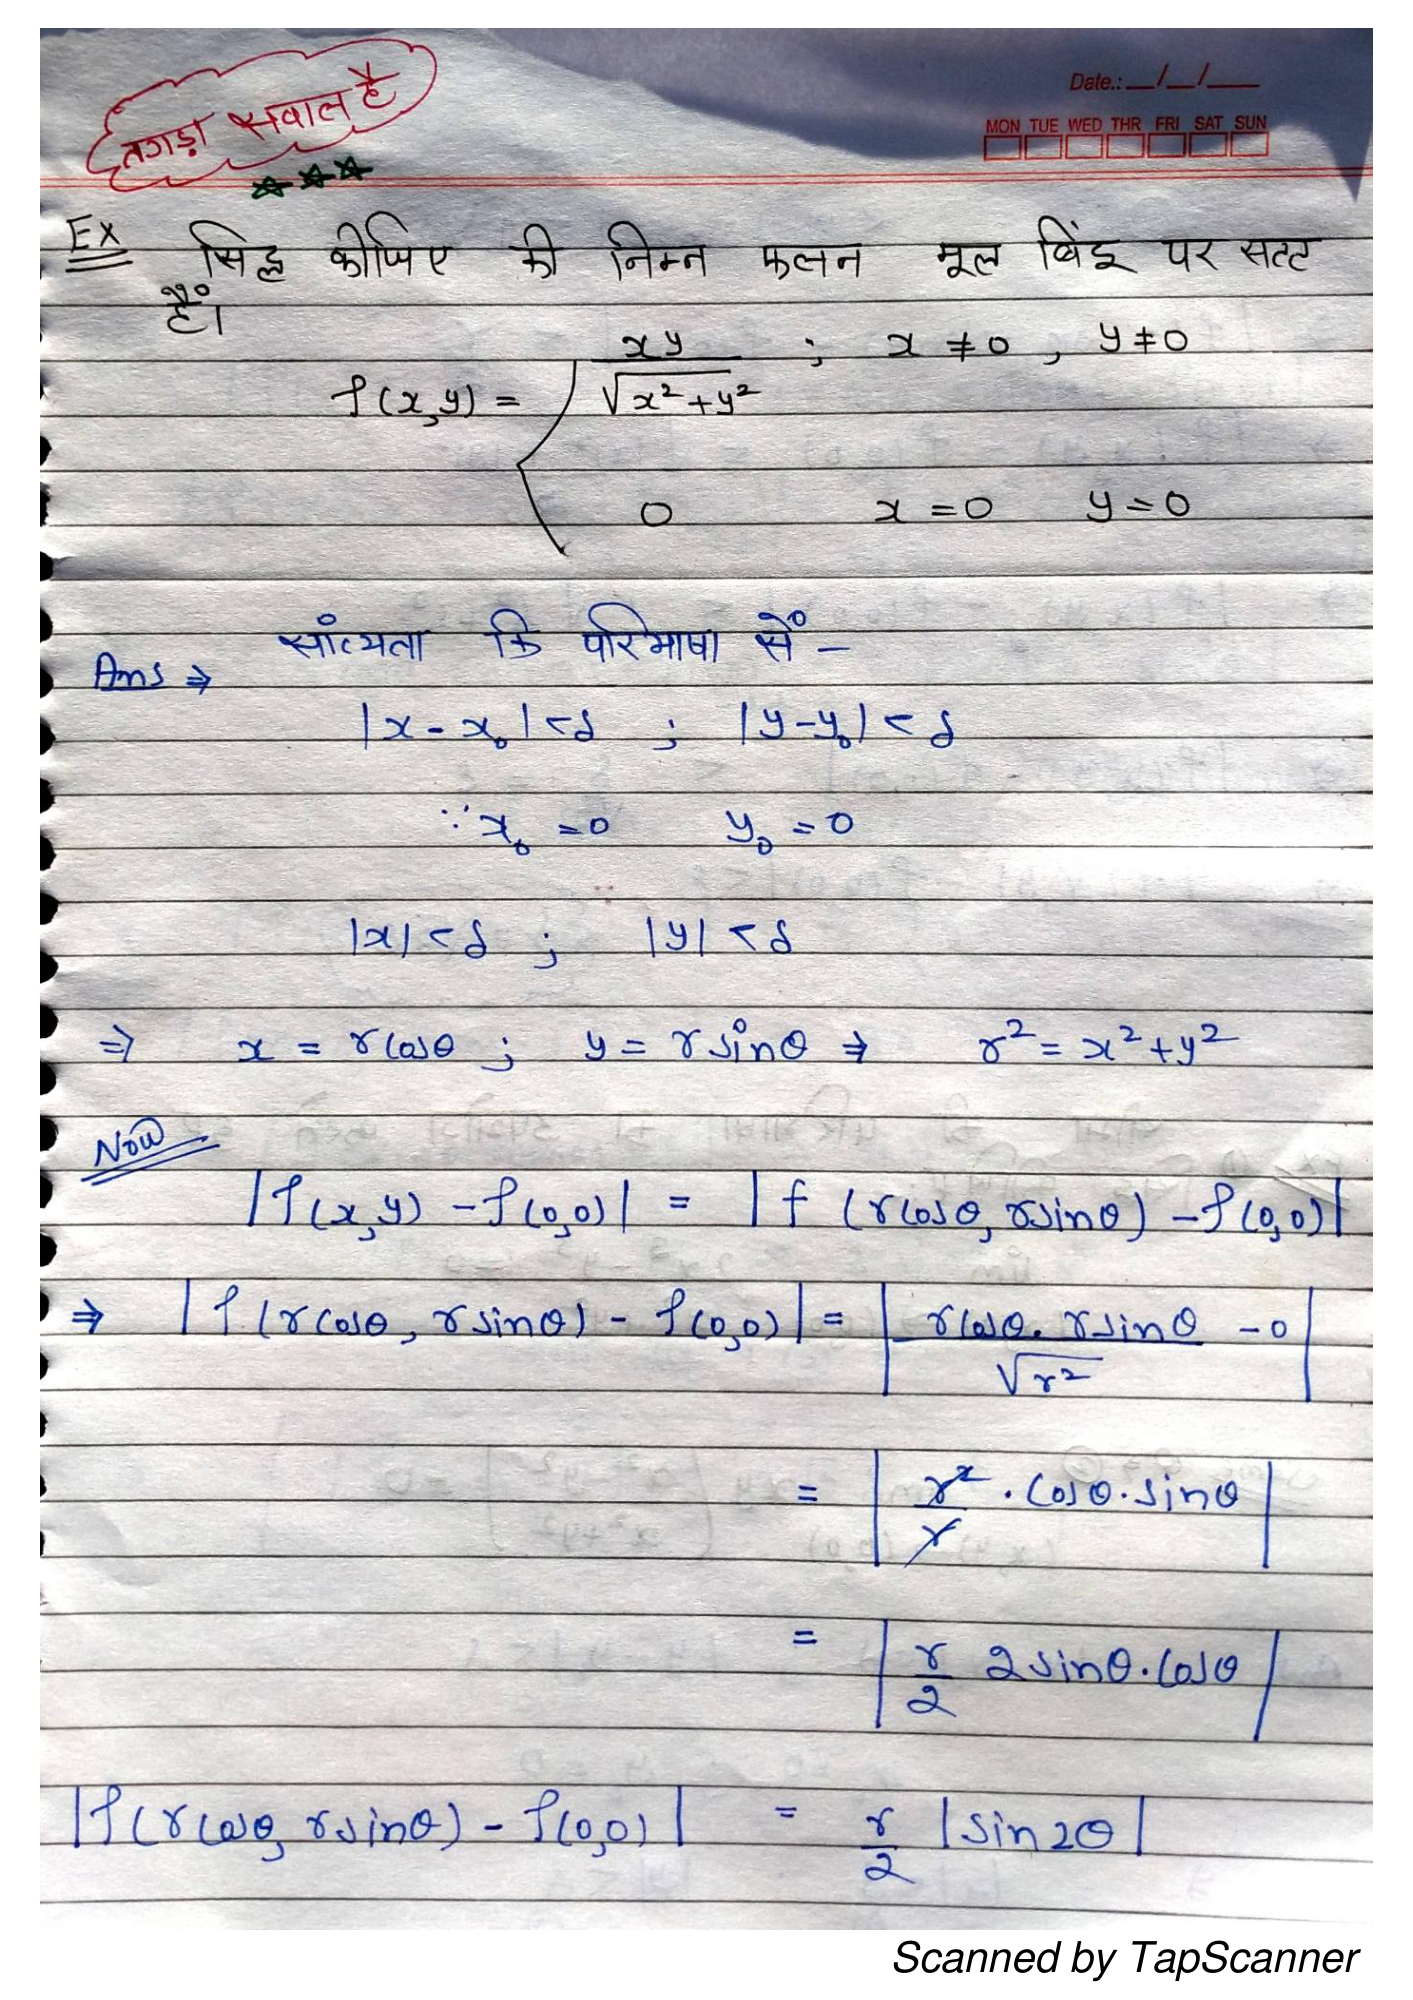 तगड़ा सवाल है
Date.: __/__/___
MON TUE WED THR FRI SAT SUN
Ex सिद्ध कीजिए की निम्न फलन मूल बिंदू पर सतत
हैं।
f(x,y) = { xy / √x²+y² ; x ≠ 0 , y ≠ 0
0 x = 0 y = 0
Ans ⇒ सांत्यता कि परिभाषा सें –
|x - x₀| < δ ; |y - y₀| < δ
∵ x₀ = 0 y₀ = 0
|x| < δ ; |y| < δ
⇒ x = r cosθ ; y = r sinθ ⇒ r² = x² + y²
Now
|f(x,y) - f(0,0)| = |f (r cosθ, r sinθ) - f(0,0)|
⇒ |f(r cosθ, r sinθ) - f(0,0)| = | r cosθ. r sinθ / √r² - 0 |
= | r² / r . cosθ. sinθ |
= | r/2 2 sinθ. cosθ |
|f(r cosθ, r sinθ) - f(0,0)| = r/2 |sin2θ|
Scanned by TapScanner